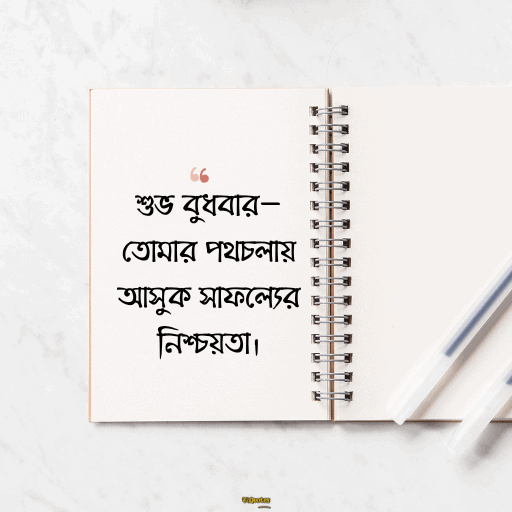 “
শুভ বুধবার—
তোমার পথচলায়
আসুক সাফল্যের
নিশ্চয়তা।